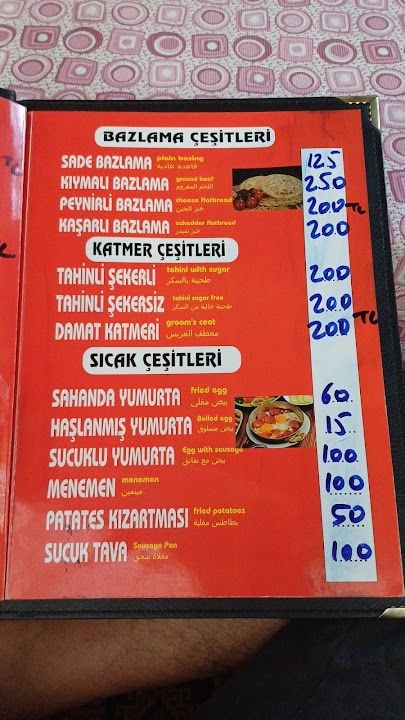 BAZLAMA ÇEŞİTLERİ
SADE BAZLAMA plain basing قاعدة عادية 125
KIYMALI BAZLAMA ground beef اللحم المفروم 250
PEYNİRLİ BAZLAMA cheese flatbread خبز الجبن 200 TL
KAŞARLI BAZLAMA acheddar flatbread خبز شيدر 200
KATMER ÇEŞİTLERİ
TAHİNLİ ŞEKERLİ tahini with sugar طحينة بالسكر 200
TAHİNLİ ŞEKERSİZ tahini sugar free طحينة خالية من السكر 200
DAMAT KATMERİ groom's coat معطف العريس 200 TL
SICAK ÇEŞİTLERİ
SAHANDA YUMURTA fried egg بيض مقلي 60
HAŞLANMIŞ YUMURTA Boiled egg بيض مسلوق 15
SUCUKLU YUMURTA Egg with sausage بيض مع نقانق 100
MENEMEN menemen مينمين 100
PATATES KIZARTMASI fried potatoes بطاطس مقلية 50
SUCUK TAVA Sausage Pan مقلاة سجق 100